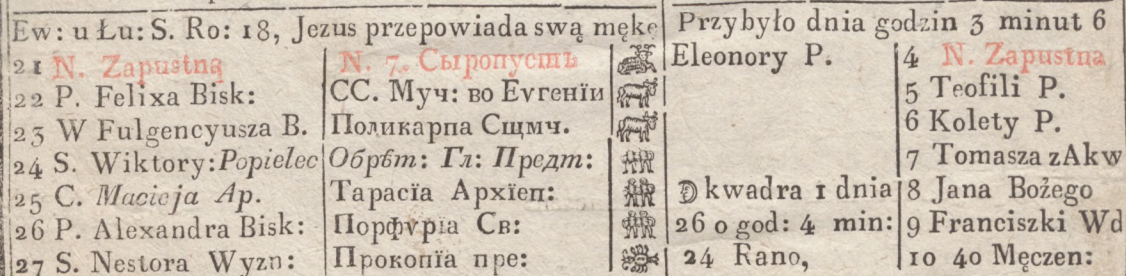 Ew: u Łu: S. Ro: 18, Jezus przepowiada swą mękę Przybyło dnia godzin 3 minut 6
21 N. Zapustną N. 7. Сыропустъ Eleonory P. 4 N. Zapustna
22 P. Felixa Bisk: СС. Муч: во Еѵгенїи 5 Teofili P.
23 W Fulgencyusza B. Поликарпа Сщмч. 6 Kolety P.
24 S. Wiktory: Popielec Обрѣт: Гл: Предт: 7 Tomasza z Akw
25 C. Macieja Ap. Тарасїа Архїеп: kwadra 1 dnia 8 Jana Bożego
26 P. Alexandra Bisk: Порфѵрїа Св: 26 o god: 4 min: 9 Franciszki Wd
27 S. Nestora Wyzn: Прокопїа пре: 24 Rano, 10 40 Męczen: